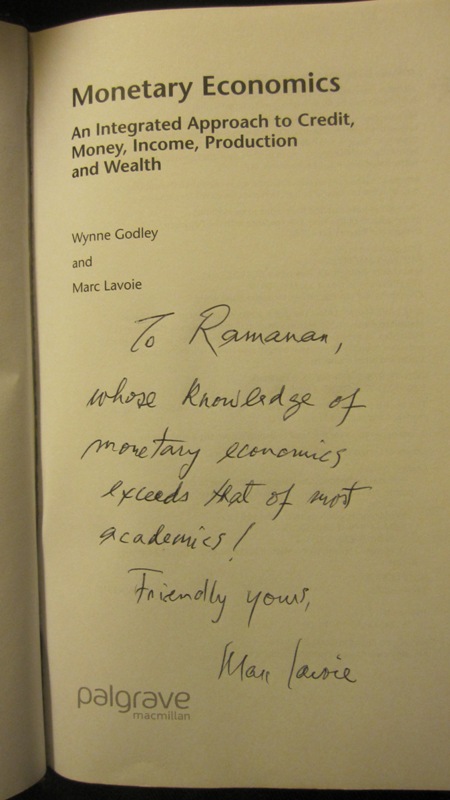 Monetary Economics
An Integrated Approach to Credit,
Money, Income, Production
and Wealth
Wynne Godley
and
Marc Lavoie
To Ramanan,
whose knowledge of
monetary economics
exceeds that of most
academics!
Friendly yours,
Marc Lavoie
palgrave
macmillan